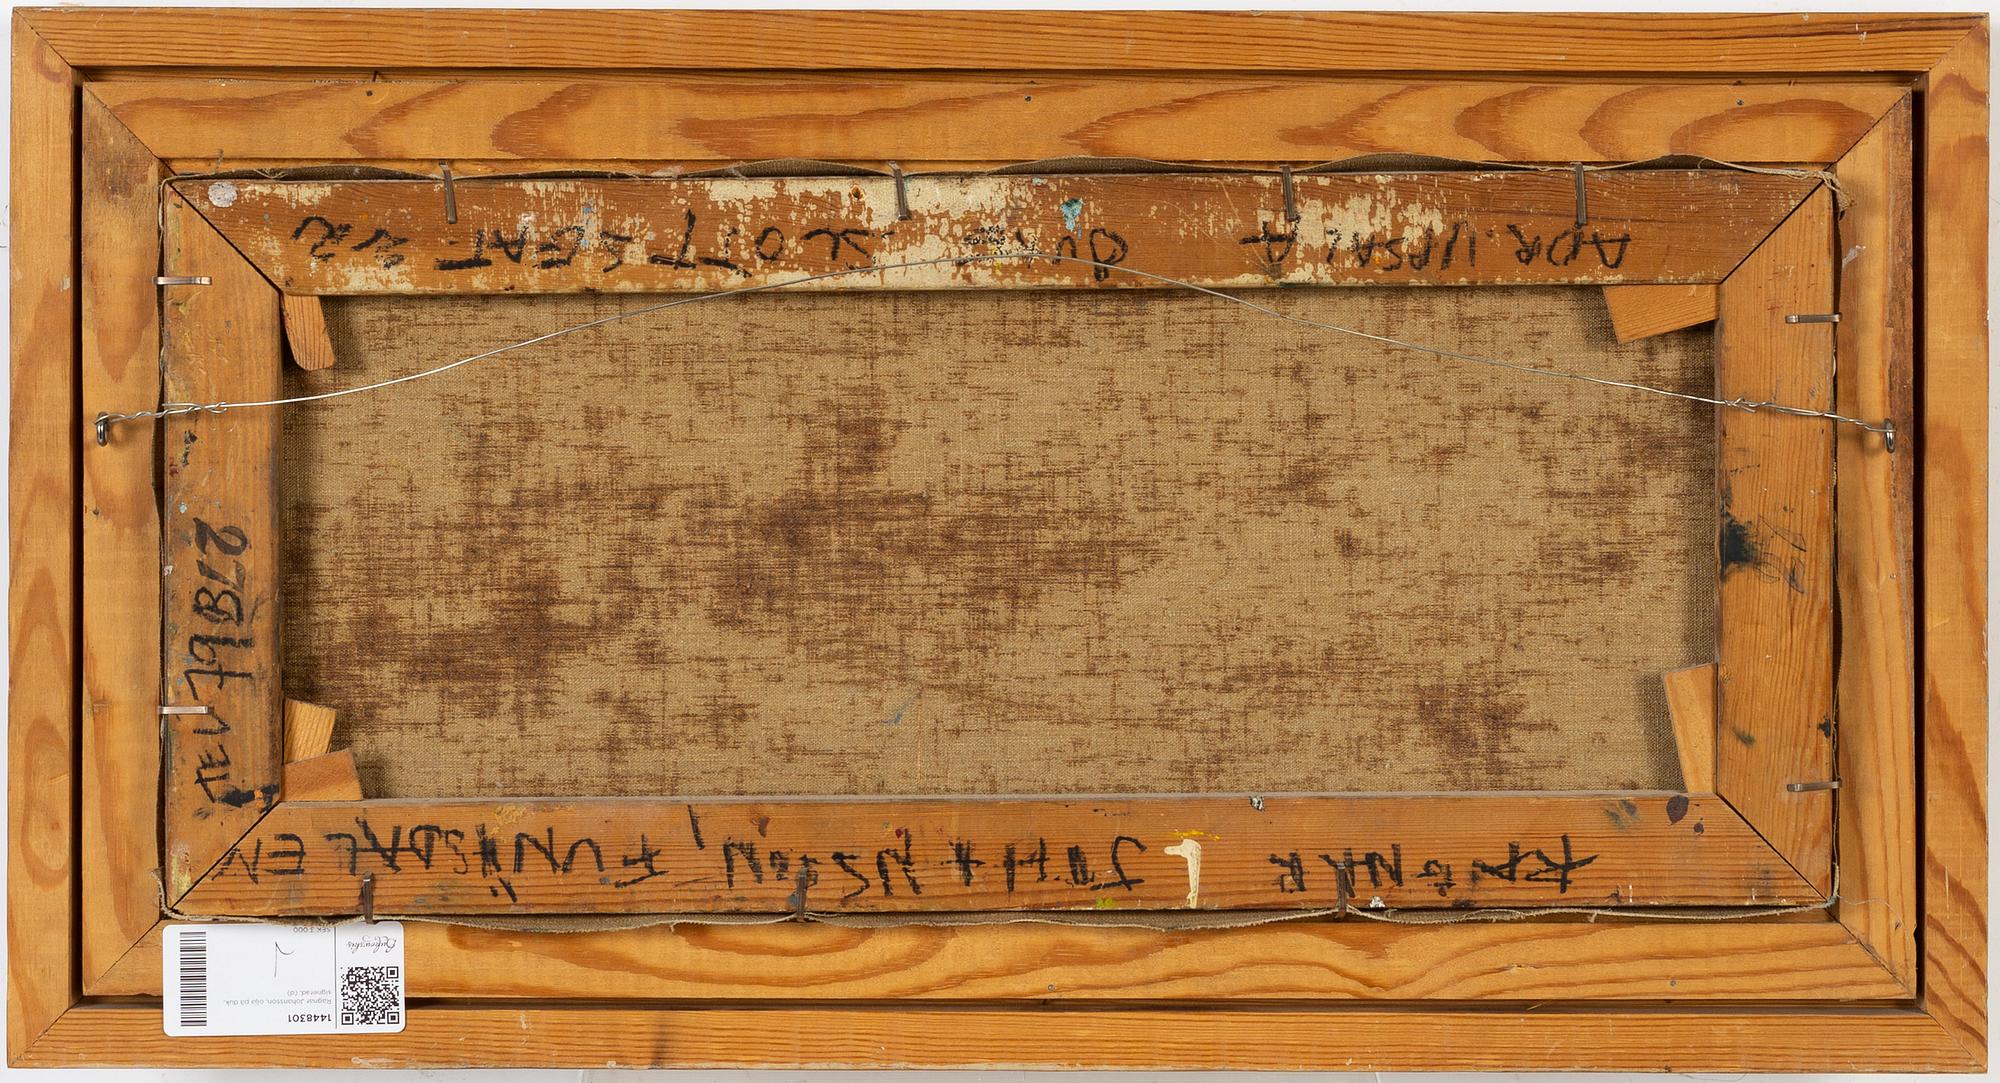 1448301
Ragnar Johansson, olja på duk,
signerad. (d)
SEK 3 000
Bukowskis
RAGNAR JOHANSSON, FUNÄSDALEN
ADR. UPSALA ÖVRE SLOTTSGAT. 22